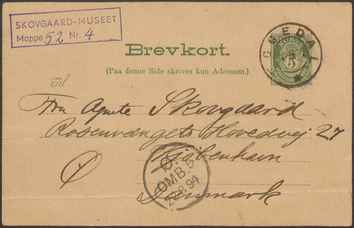 SKOVGAARD-MUSEET
Mappe 52 Nr. 4
Brevkort.
(Paa denne Side skrives kun Adressen.)
Til
Fru Agnete Skovgaard
Rosenvængets Hovedvej 27
Kjøbenhavn
Ø
Danmark
OMB.5